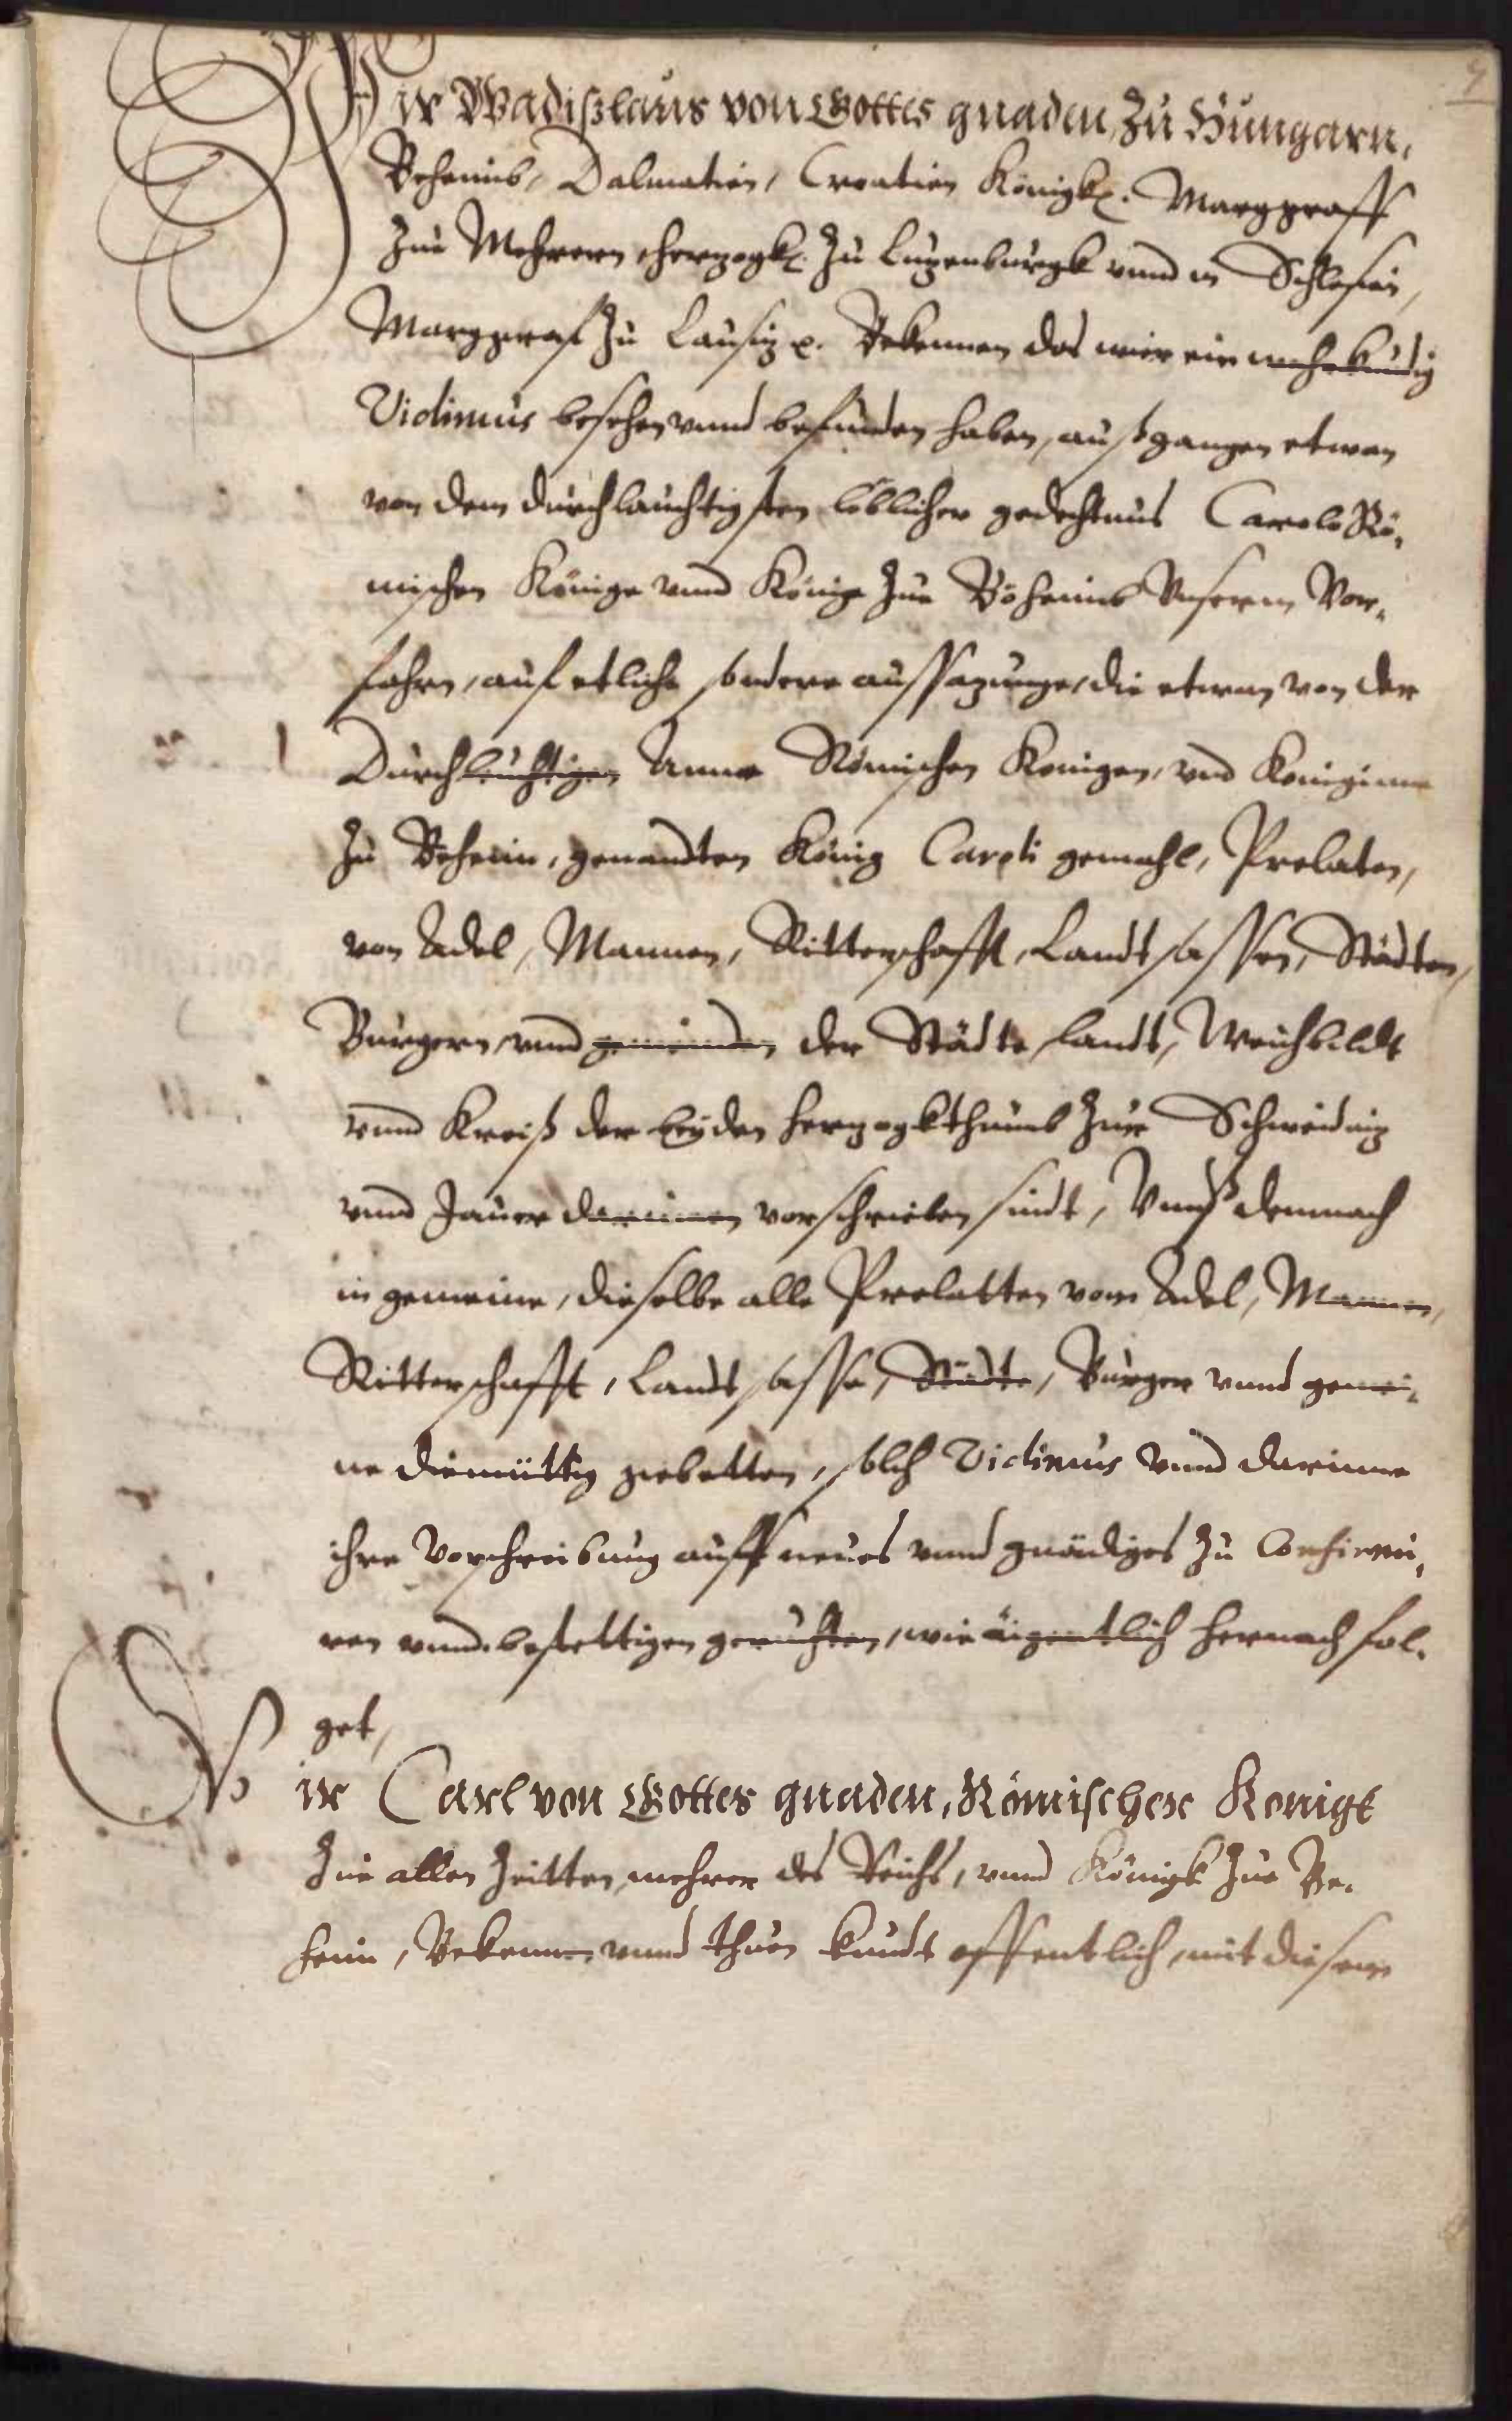 Wir Wladißlaus von Gottes gnaden, Zu Hungarn,
Behaimb, Dalmatien, Croatien Königk. Marggraff
Zue Mehrern, hertzogk. Zu Lutzenburgk vnnd in Schlesien,
Marggraf Zu Lausitz. Bekennen das wier ein
Vidimus besehen vnnd befunden haben, außgangen etwan
von dem durchlauchtigsten löblicher gedechtnus Carolo Rö-
mischen Könige vnnd Könige Zue Böhaimb Vnserm Vor-
fahrn, auf etliche sondere aussatzunge, die etwan von der
Durchleuchtigen Anna Römischen Konigen, vnd Koniginne
Zu Behein, genandten König Caroli gemahl, Prelaten,
von Adel, Mannen, Ritterschafft, Landtsassen, Städten,
Burgern vnnd gemeinden der Städte, Landt, Weichbildt
vnnd Kreiß der beyden hertzogkthumb Zue Schweidnitz
vnnd Jauer darinnen vorschrieben sindt, Vnnß demnach
in gemeine, dieselbe alle Prelatten vom Adel, Mannen,
Ritterschafft, Landtsasse, Städte, Burger vnnd gemei-
ne diemüttig gebetten, solch Vidimus vnnd darinne
ihre Vorschreibung auff neues vnnd gnädiges Zu Confirmi-
ren vnnd bestettigen geruchten, wie eigentlich hernach fol-
get,
Wir Carl von Gottes gnaden, Römischer Konigk
Zue allen Zeitten mehrer des Reichs, vnnd Königk Zue Be-
heim, Bekennen vnnd thuen kundt offentlich, mit diesem